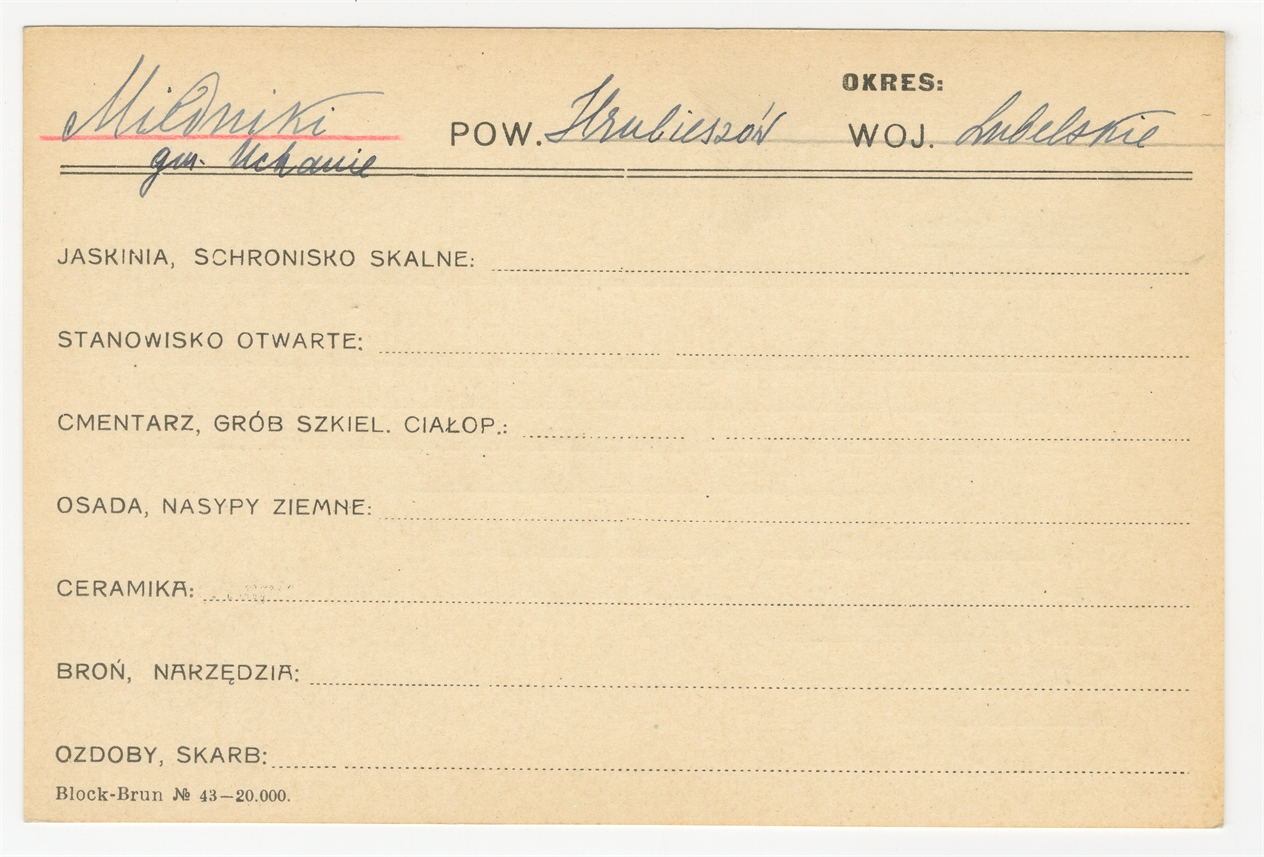 OKRES:
Miedniki POW. Hrubieszów WOJ. Lubelskie
gm. Uchanie
JASKINIA, SCHRONISKO SKALNE:
STANOWISKO OTWARTE:
CMENTARZ, GRÓB SZKIEL. CIAŁOP.:
OSADA, NASYPY ZIEMNE:
CERAMIKA:
BROŃ, NARZĘDZIA:
OZDOBY, SKARB:
Block-Brun № 43—20.000.